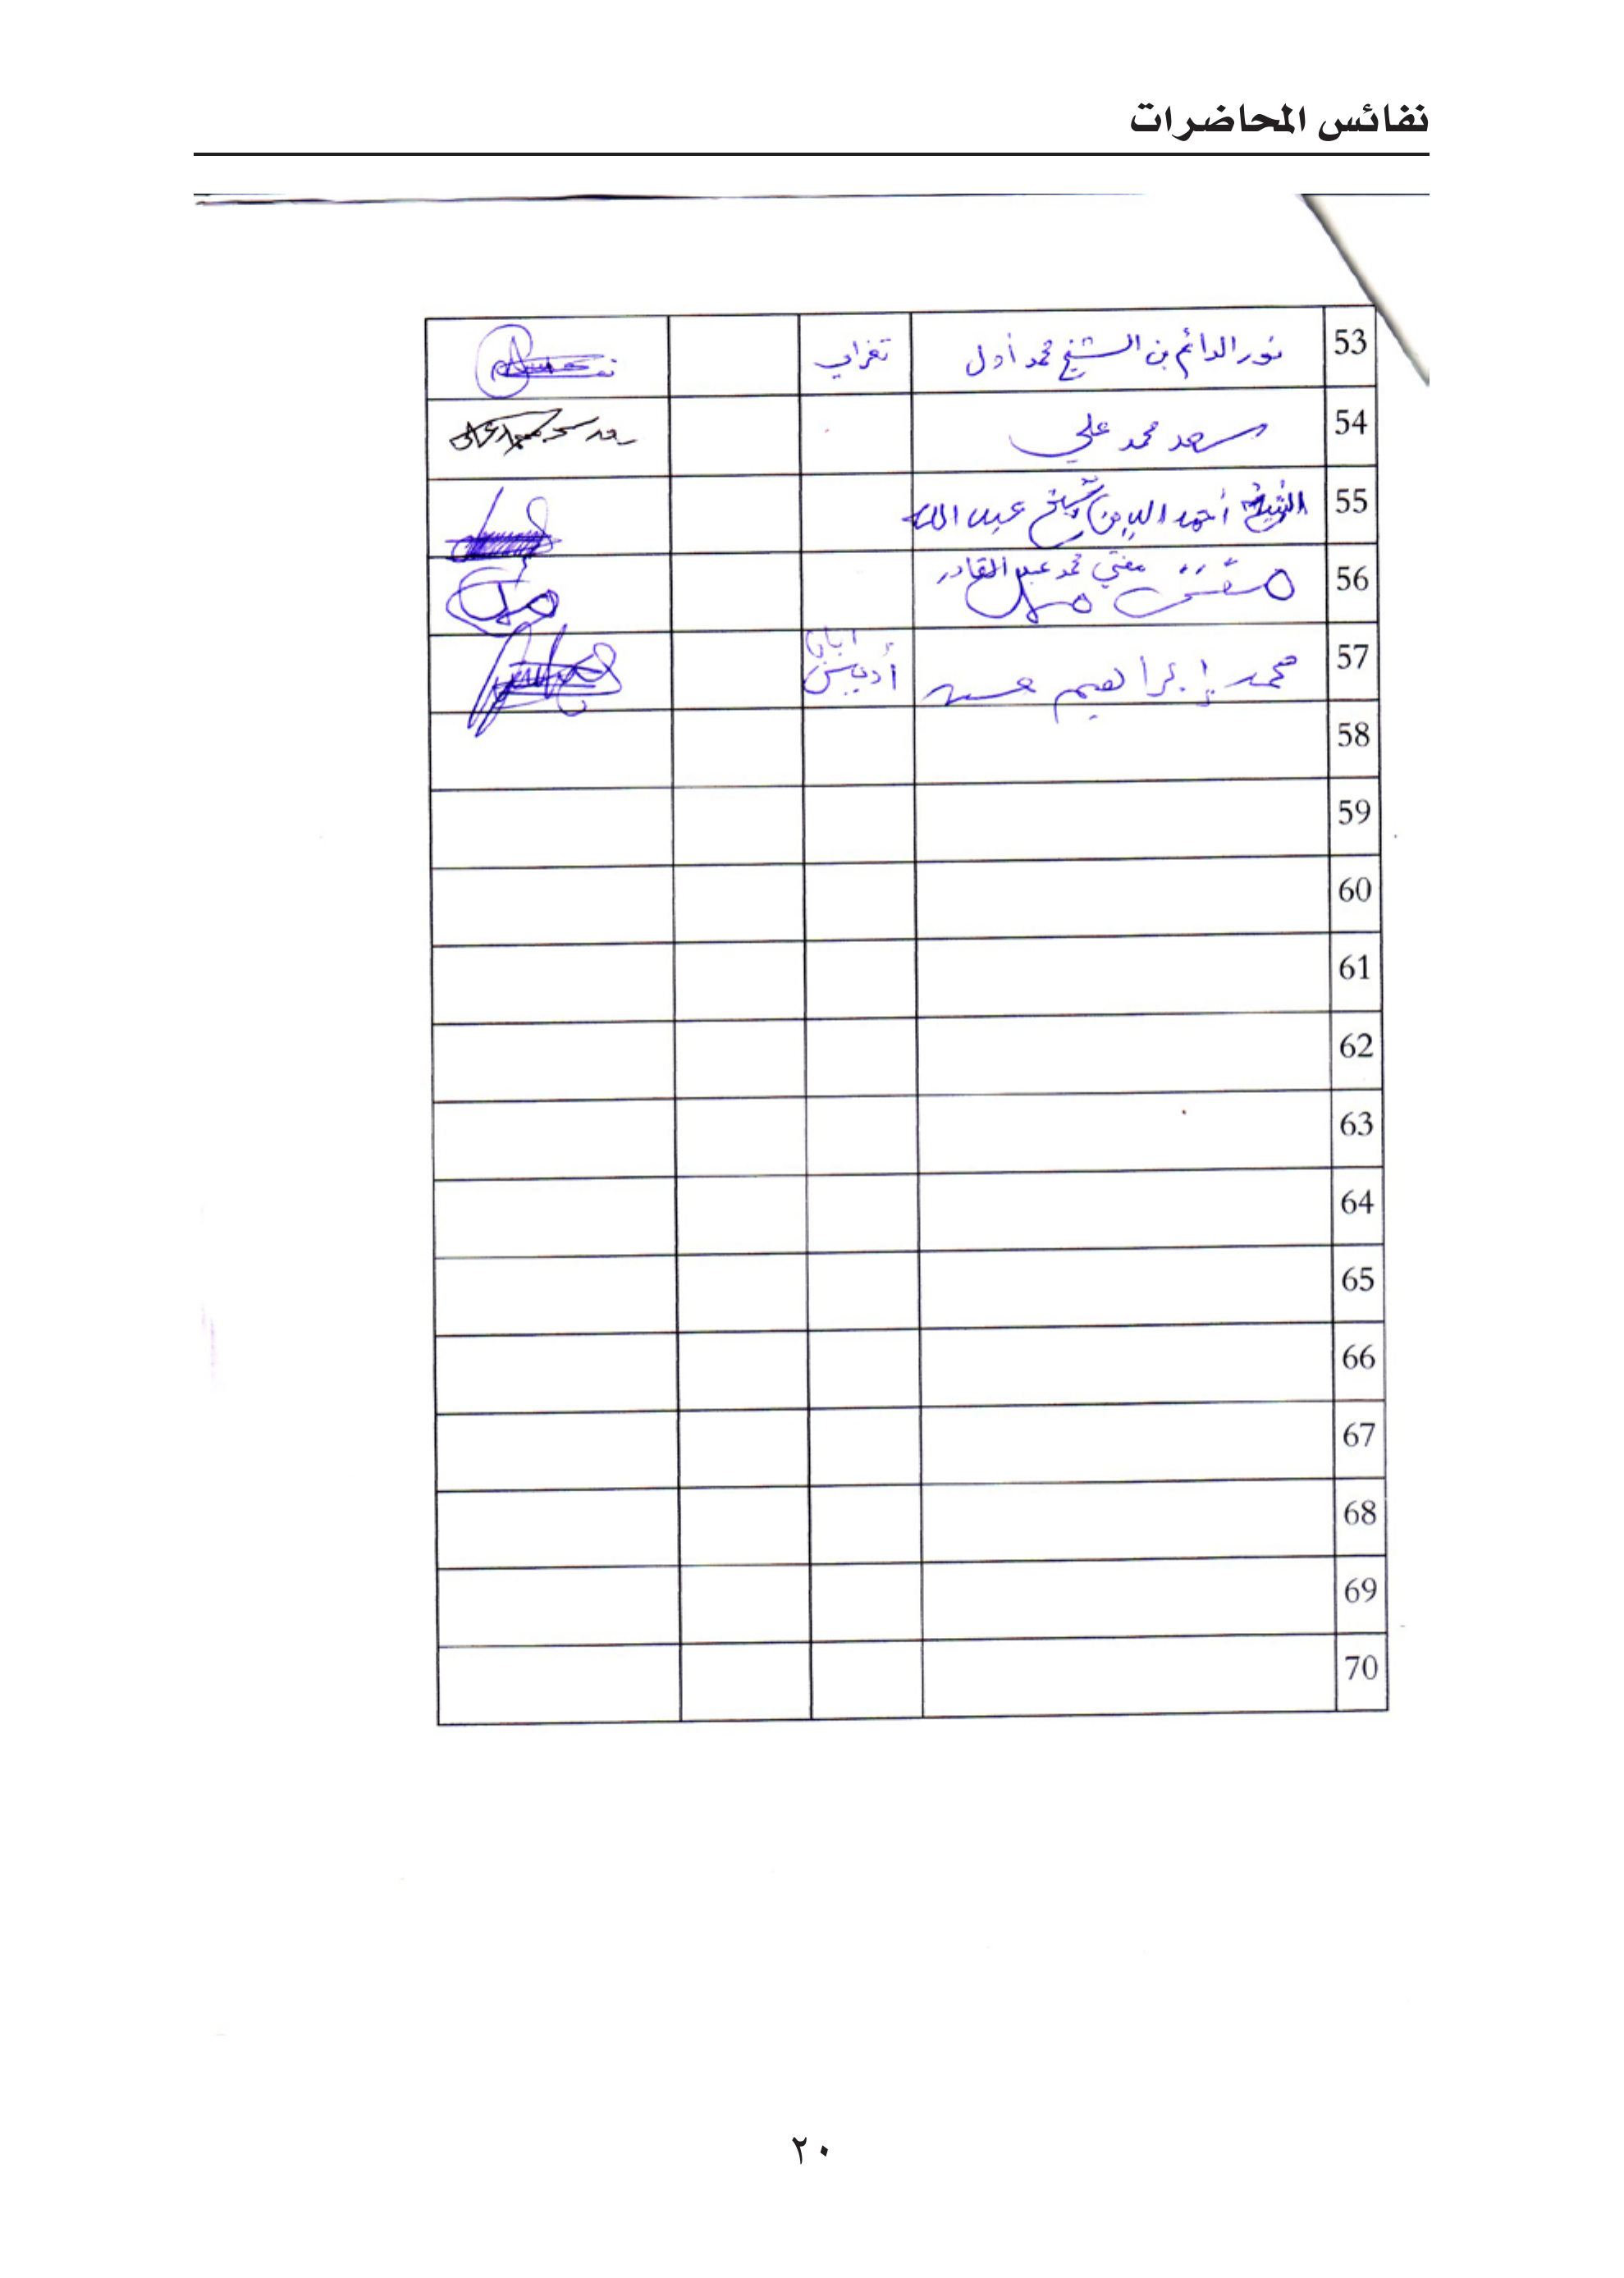 نفائس المحاضرات
53 نور الدائم بن الشيخ محمد أول تغراي
54 سعد محمد علي
55 الشيخ أحمد الدين شيخ عبد الله
56 مفتي محمد عبد القادر
57 محمد إبراهيم حسن أديس أبابا
58
59
60
61
62
63
64
65
66
67
68
69
70
٢٠